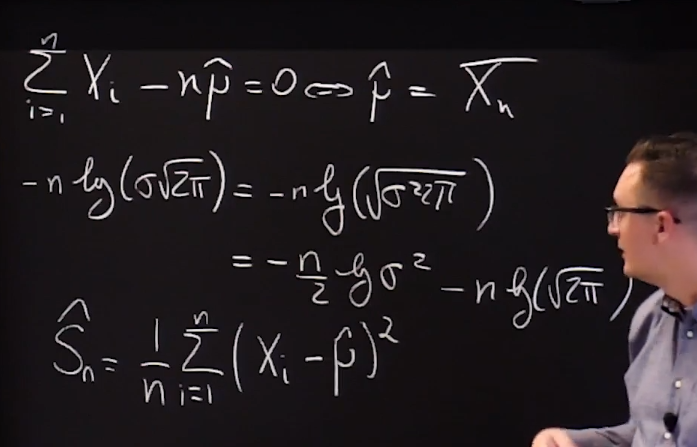 ∑_{i=1}^{n} X_i − nμ̂ = 0 ⇔ μ̂ = X̅_n
−n lg(σ√2π) = −n lg(√σ²2π)
= −n/2 lg σ² − n lg(√2π)
Ŝ_n = 1/n ∑_{i=1}^{n} (X_i − μ̂)²